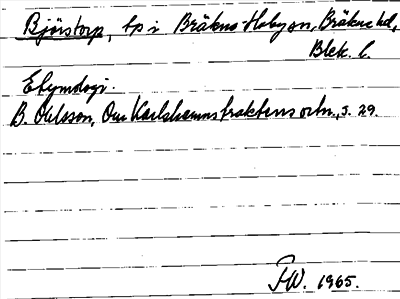 Björstorp, tp i Bräkne-Hoby sn, Bräkne hd,
Blek. l.
Etymologi.
B. Ohlsson, Om Karlshamnstraktens ortn., s. 29.
HW. 1965.